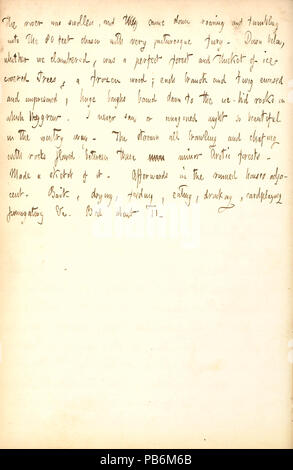 The river was swollen, and they came down roaring and tumbling
into the 80 feet chasm with very picturesque fury. Down below,
whither we clambered, was a perfect forest and thicket of ice-
covered trees, a frozen wood; each branch and twig encased
and imprisoned; huge boughs bound down to the ice-hid rocks in
which they grew. I never saw or imagined sight so beautiful
in the wintry way. The stream all brawling and chafing
with rocks flowed between these minor Arctic forests.
Made a sketch of it. Afterwards in the ruined houses adja-
cent. Back, drying, feeding, eating, drinking, cardplaying
fumigating &c. Bed about 11.
alamy
Image ID: PB6M6B
www.alamy.com